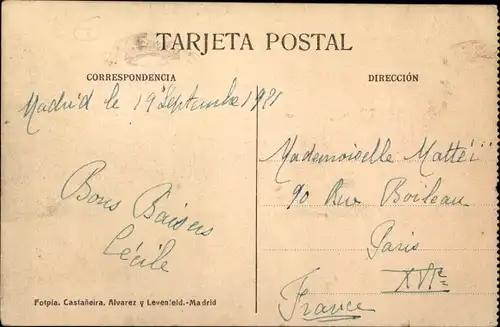 TARJETA POSTAL
CORRESPONDENCIA
DIRECCIÓN
Madrid le 19 Septembre 1921
Bons Baisers
Cécile
Mademoiselle Matteï
90 Rue Boileau
Paris
XVIe
France
Fotpia. Castañeira, Alvarez y Levenfeld.-Madrid